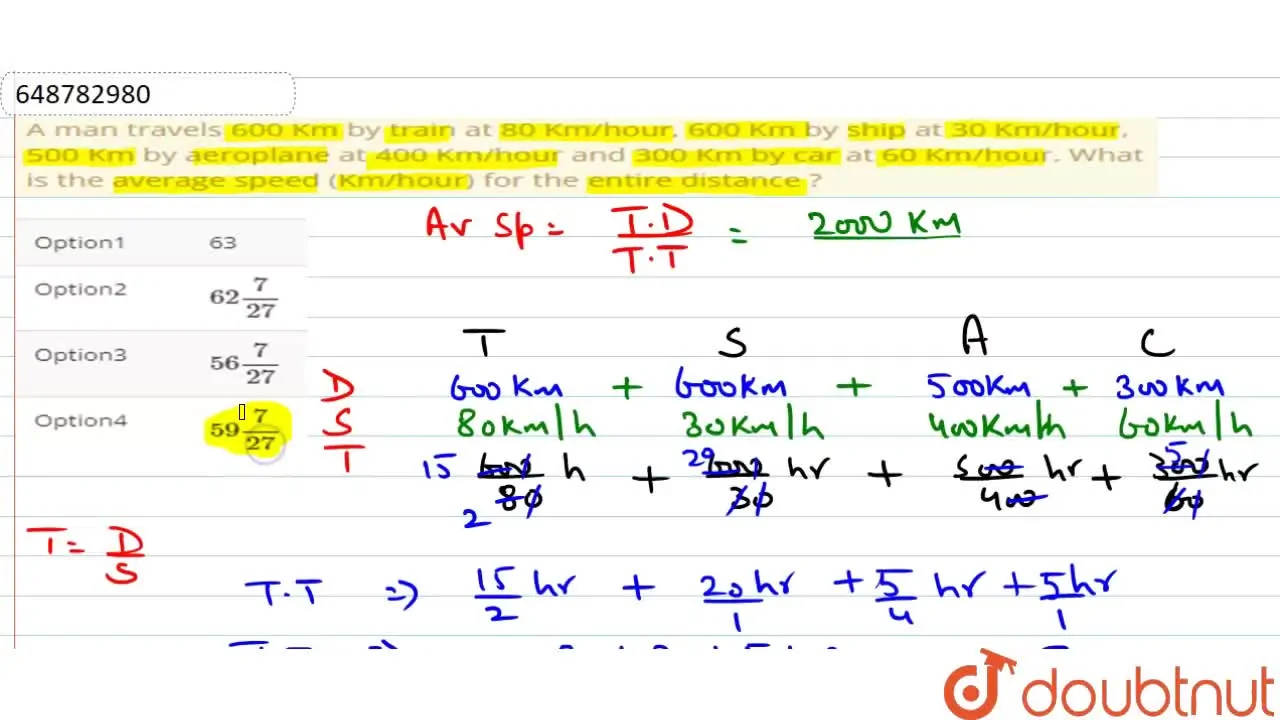 648782980
A man travels 600 Km by train at 80 Km/hour, 600 Km by ship at 30 Km/hour,
500 Km by aeroplane at 400 Km/hour and 300 Km by car at 60 Km/hour. What
is the average speed (Km/hour) for the entire distance ?
Av Sp = T.D/T.T = 2000 Km
Option1 63
Option2 62 7/27
Option3 56 7/27
Option4 59 7/27
T S A C
D 600 Km + 600 Km + 500 Km + 300 Km
S 80 Km/h 30 Km/h 400 Km/h 60 Km/h
T 15 600/80 2 h + 20 600/30 hr + 500/400 hr + 5 300/60 hr
T = D/S
T.T => 15/2 hr + 20/1 hr + 5/4 hr + 5/1 hr
doubtnut